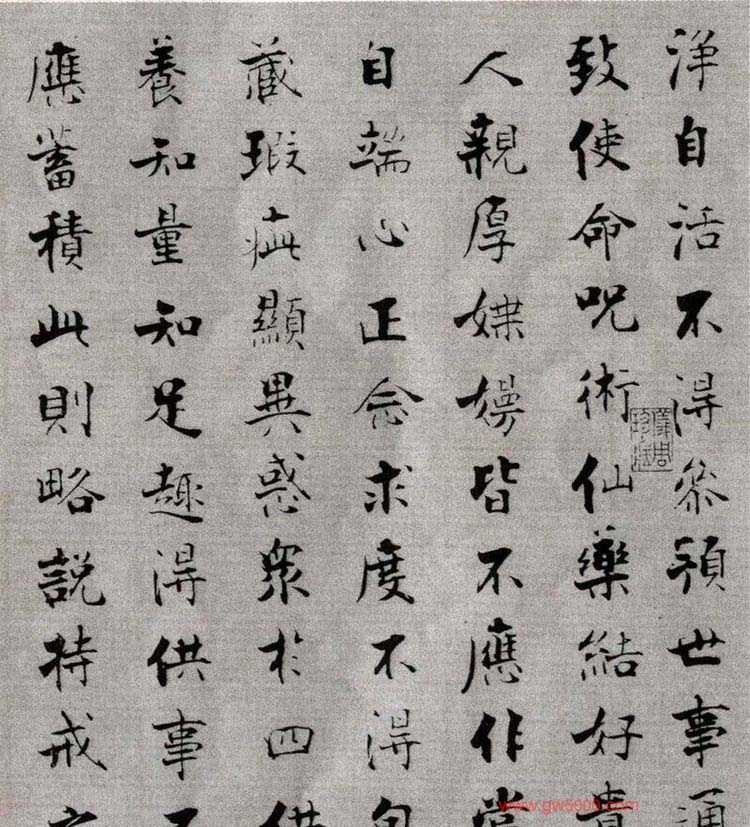 淨自活不得參預世事通
致使命呪術仙藥結好貴
人親厚媟嫚皆不應作當
自端心正念求度不得包
藏瑕疵顯異惑眾於四供
養知量知足趣得供事不
應蓄積此則略說持戒之
www.gw5000.com